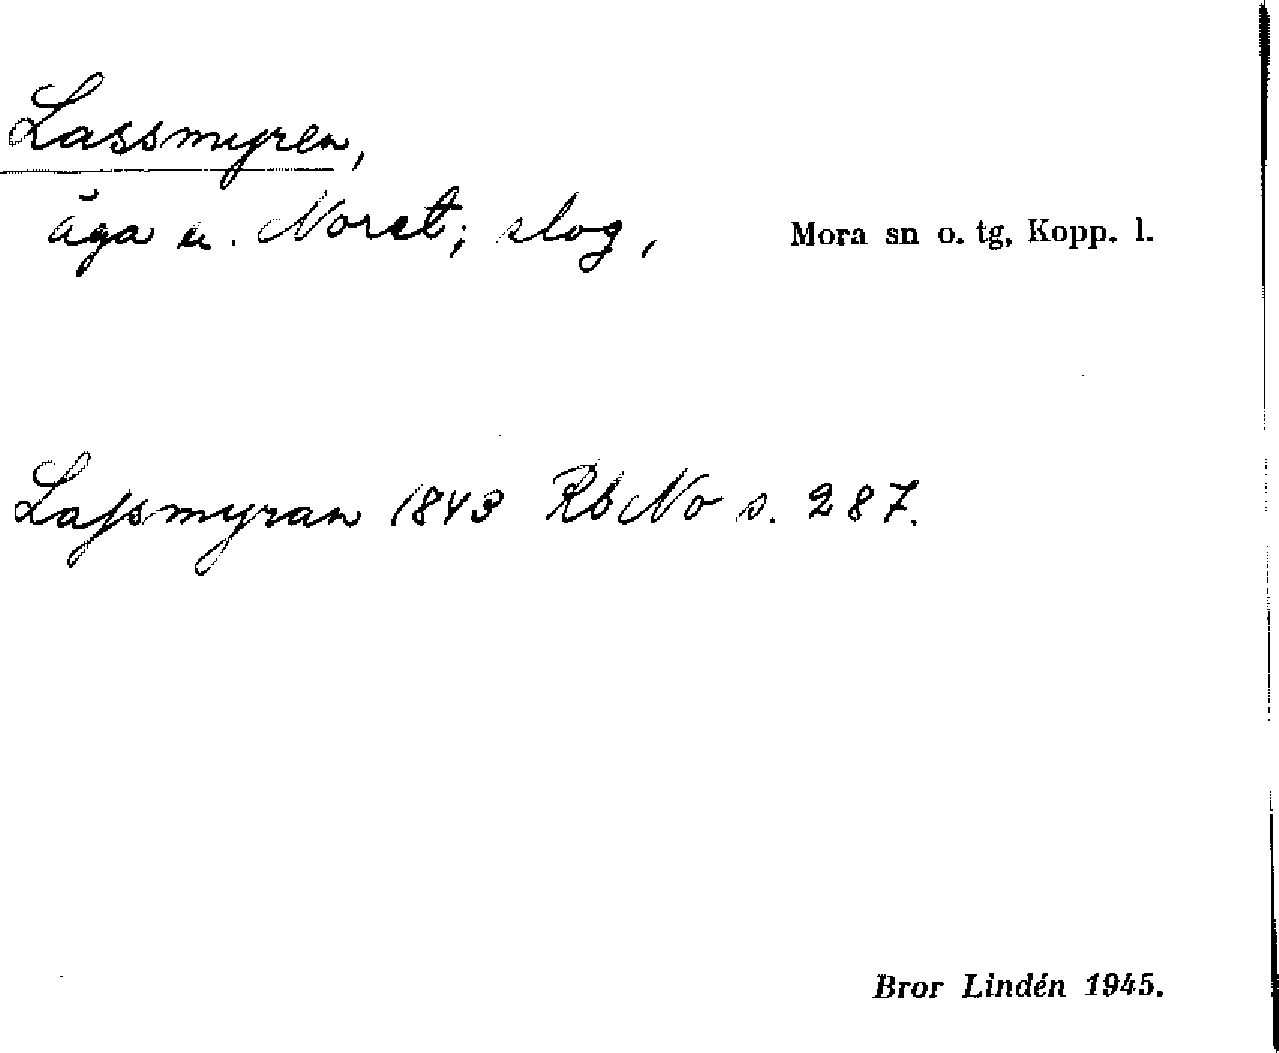 Lassmyren,
äga u. Noret; slog, Mora sn o. tg, Kopp. l.
Lassmyran 1843 Rb No s. 287.
Bror Lindén 1945.